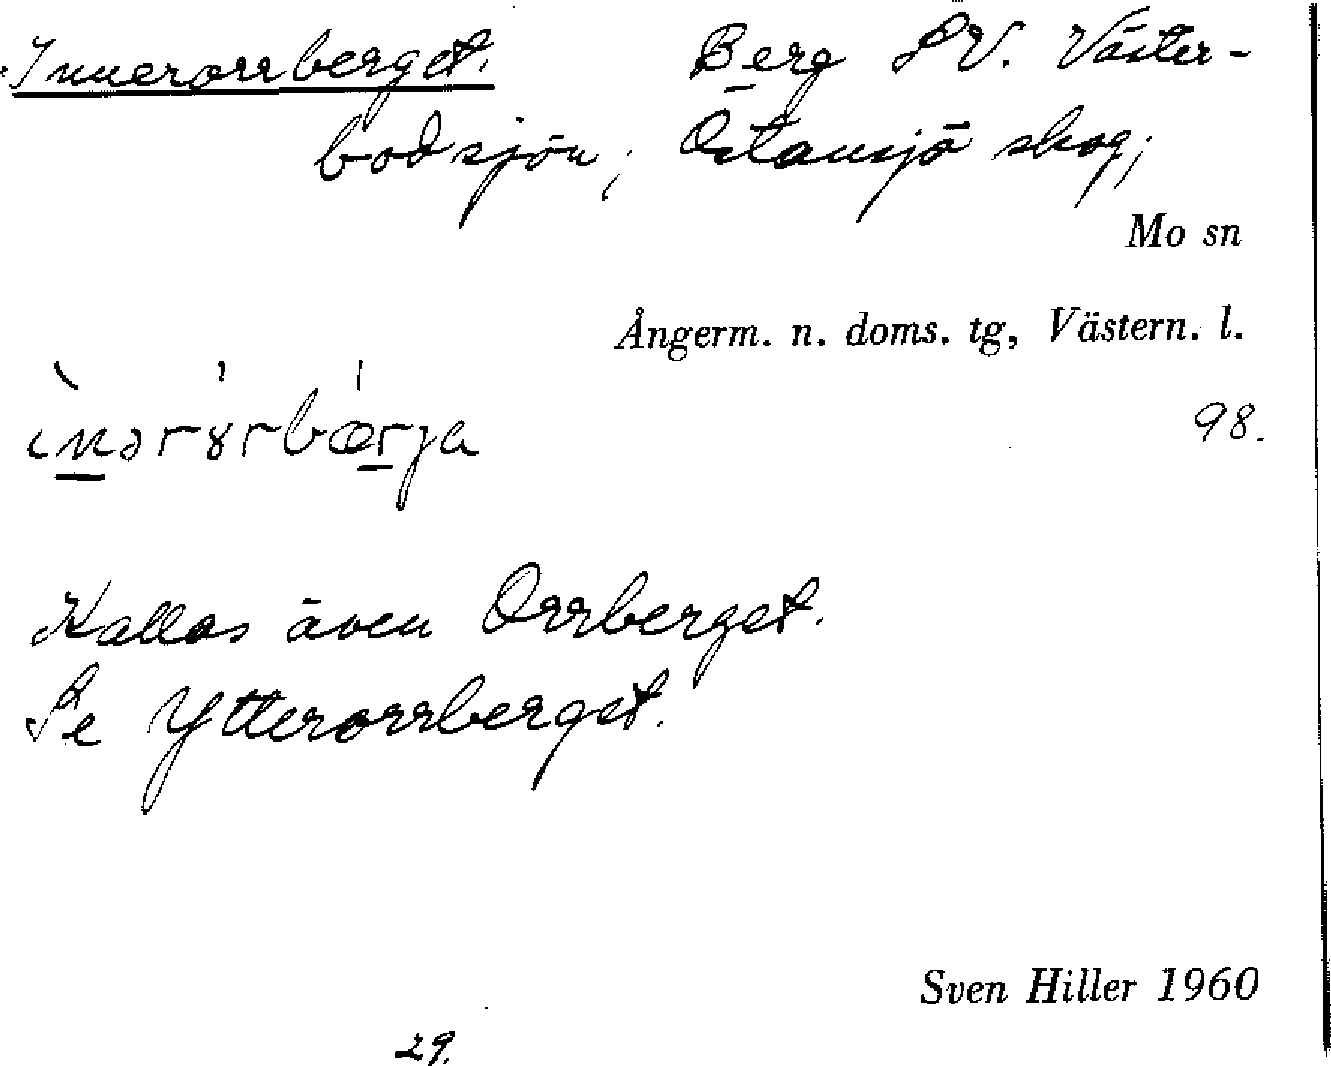 Innerorrberget. Berg SV. Väster-
bodsjön; Östansjö skog;
Mo sn
Ångerm. n. doms. tg, Västern. l.
ìnərɤ́rbǽrja
98.
Kallas även Orrberget.
Se Ytterorrberget.
Sven Hiller 1960
29.